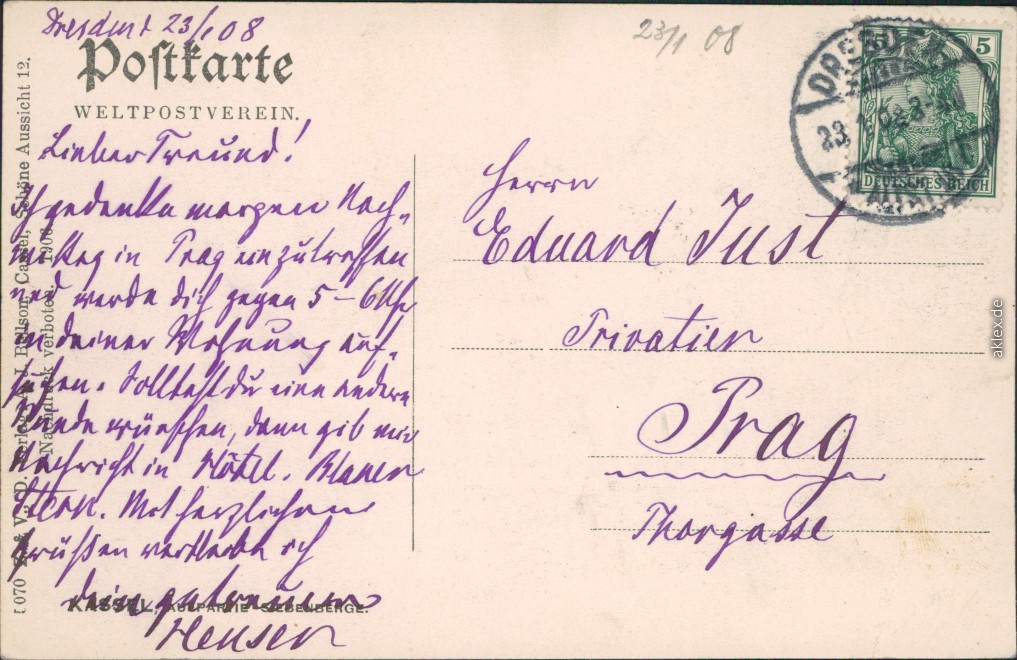 Dresden 23/1 08
23/1 08
Postkarte
WELTPOSTVEREIN.
Lieber Freund!
Ich gedenke morgen Nach-
mittag in Prag einzutreffen
und werde dich gegen 5-6 Uhr
in deiner Wohnung auf-
suchen. Solltest Du eine andere
Stunde wünschen, dann gib mir
Nachricht in Hôtel. Blauer
Stern. Mit herzlichen
Grüßen verbleibe ich
dein getreuer
Herrn
Eduard Just
Privatier
Prag
Thorgasse
DRESDEN
23. 1. 08. 8-
5
DEUTSCHES REICH
KASSEL, AUEPARTIE SIEBENBERGE.
Nachdruck verboten. 1906
Cassel, Schöne Aussicht 12.
070
aklex.de